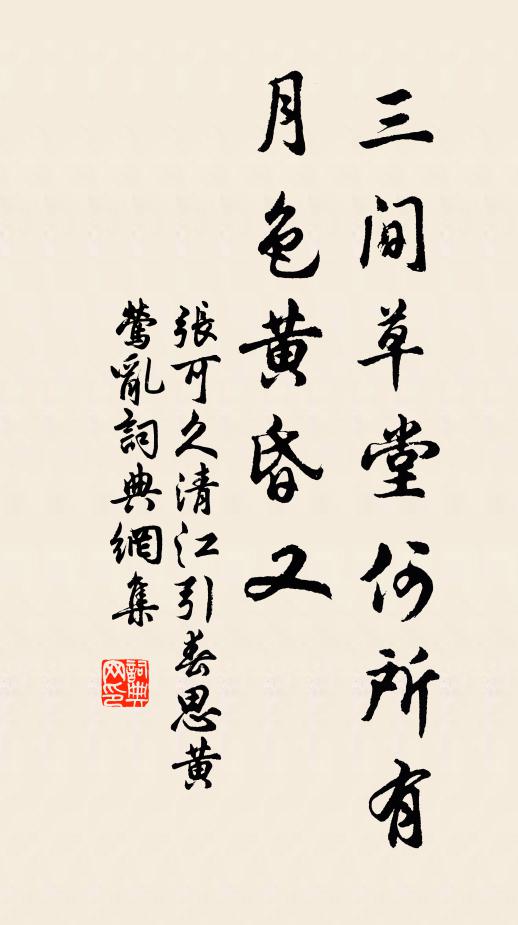 三間草堂何所有
月色黄昏又
張可久清江引春思黄
鶯亂詞典網集
詞典网印